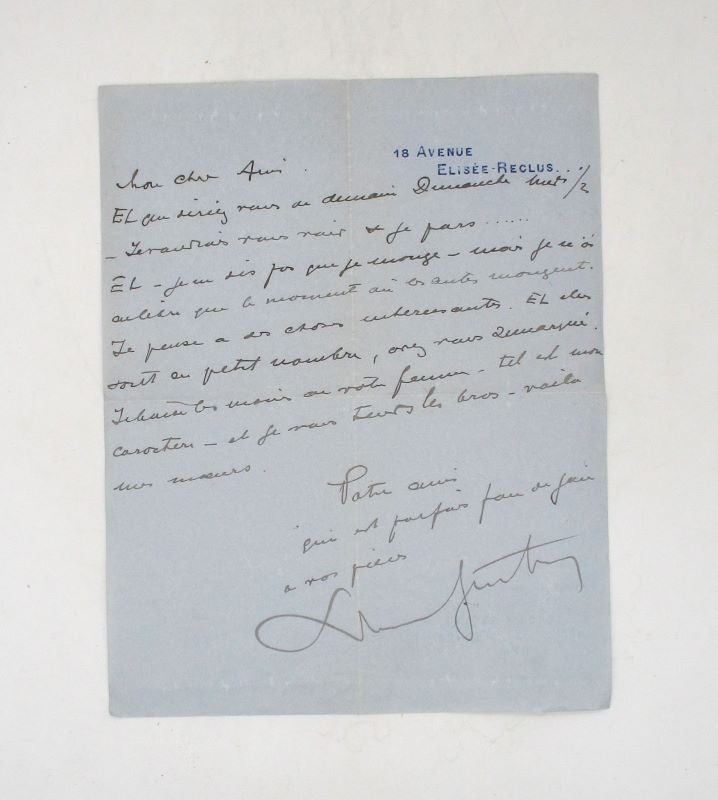 18 AVENUE
ELISÉE-RECLUS...
Mon cher Ami.
Et que diriez vous de demain Dimanche midi 1/2
- Je voudrais vous voir et je pars ......
Et - je ne dis pas que je mange - mais je n'ai
célébré que le moment où les autres mangent.
Je pense a des choses interessantes. Et elles
sont en petit nombre, avez vous remarqué.
Je baise les mains de votre femme - tel est mon
caractère - et je vous tends les bras - voilà
mes mœurs.
Votre ami
qui est parfois fou de joie
a vos pièces